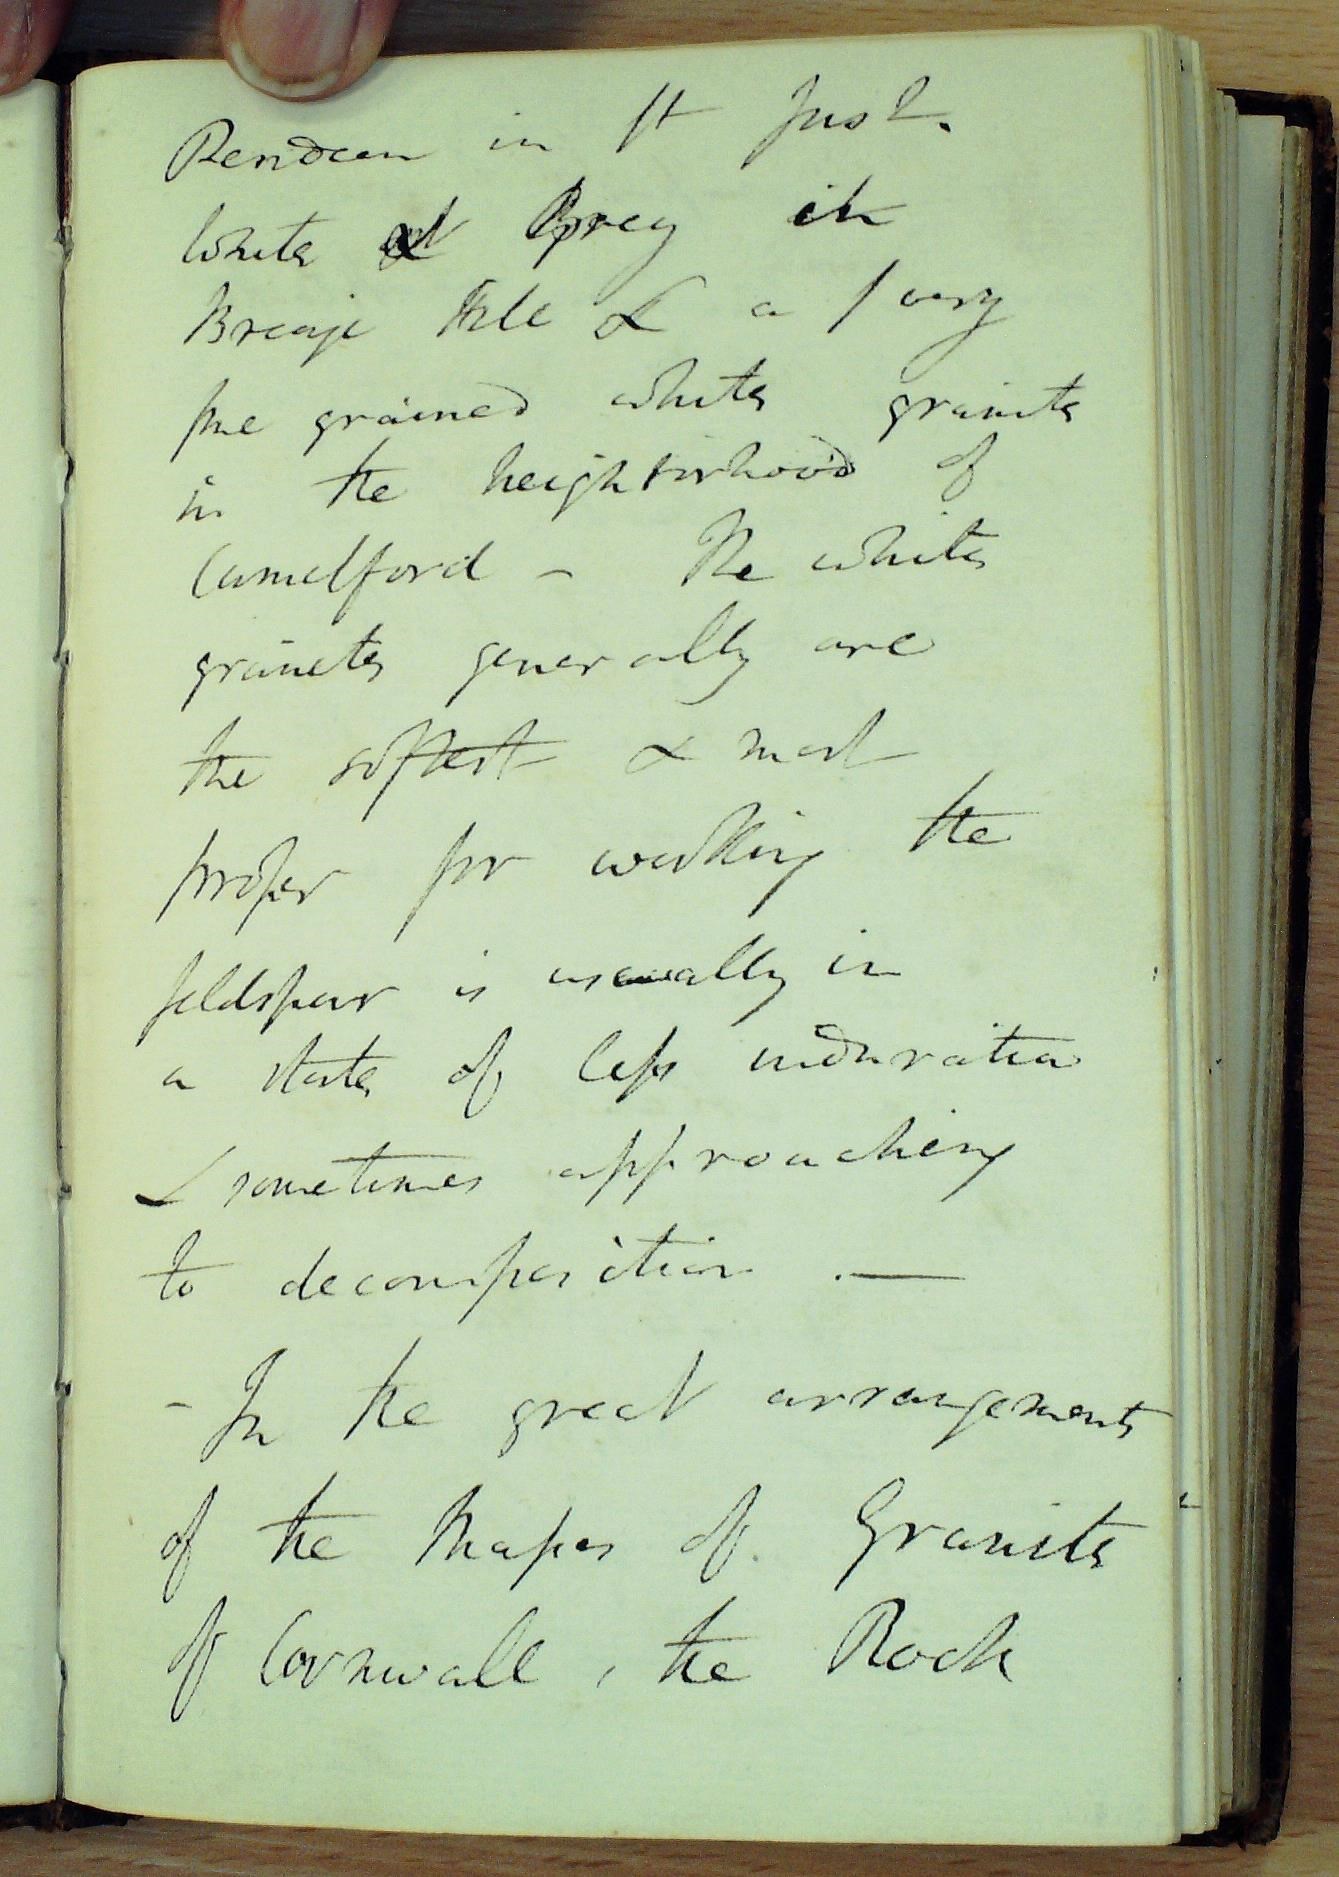 Pendeen in St Just.
White & Grey in
Breage Hill & a very
fine grained white granite
in the neighborhood of
Camelford - The white
granites generally are
the softest & most
proper for working the
feldspar is usually in
a state of less induration
& sometimes approaching
to decomposition . —
- In the great arrangements
of the Masses of Granite
of Cornwall , the Rock